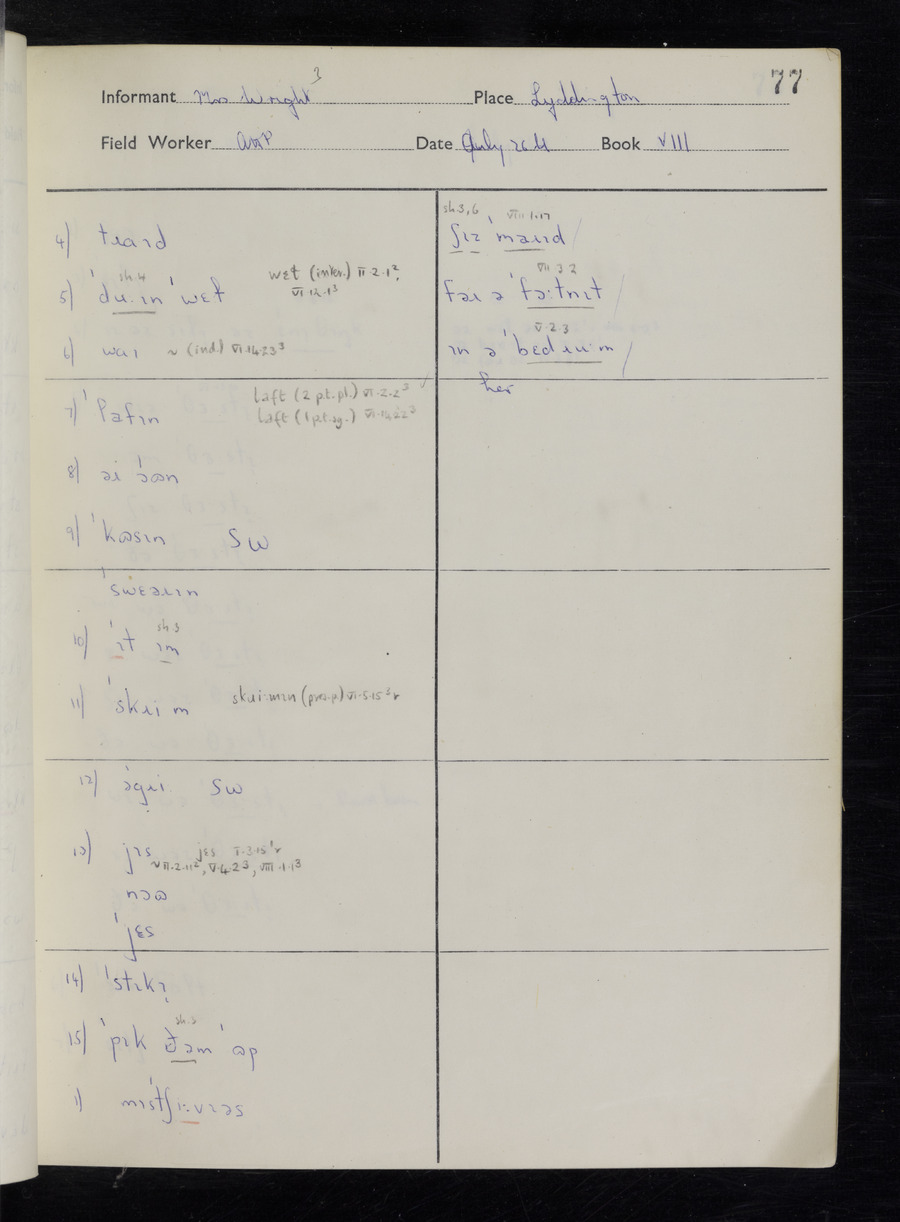 77
Informant Mrs Wright 3 Place Lyddington
Field Worker Date July 26th Book VIII
sh.3,6 VIII.1.17
4) tɪəɹd ʃɪz ˈmaɹɪd
sh.4 wɛt (inter.) II.2.1²,
VI.12.1³ VII.3.2
5) ˈduːɪn ˈwɛt fəɹ ə ˈfɔːtnɪt
V.2.3
6) waɪ ~ (ind.) VI.14.23³ ɪn ə ˈbɛdɹuːm
her
laft (2 p.t.pl.) VI.2.2³ ✓
7) ˈlafɪn laft (1 p.t.sg.) VI.14.22³
8) əɪ ˈɔən
9) ˈkɷsɪn SW
ˈswɛəɹɪn
sh.3
10) ˈɪt ɪm
11) ˈskɹiːm skɹiːmɪn (pres.p) VI.5.15³r
12) əˈgɹiː SW
13) jɪs jɛs V.3.15¹r
~ VII.2.11², V.4.2³, VIII.1.1³
nɔɷ
ˈjɛs
14) ˈstɪkɪ
sh.3
15) ˈpɪk ðəm ˈɷp
1) mɪsˈtʃiːvɪəs